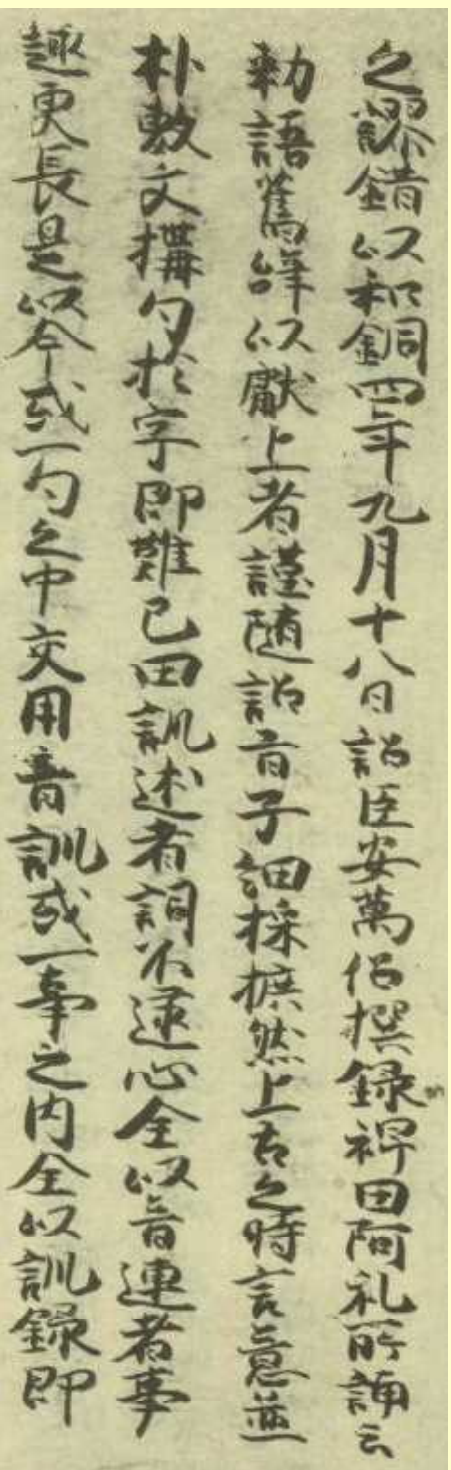 之謬錯以和銅四年九月十八日詔臣安萬侶撰録稗田阿礼所誦之
勅語舊辞以獻上者謹随詔旨子細採摭然上古之時言意並
朴敷文搆勾於字即難已因訓述者詞不逮心全以音連者事
趣更長是以今或一勾之中交用音訓或一事之内全以訓録即